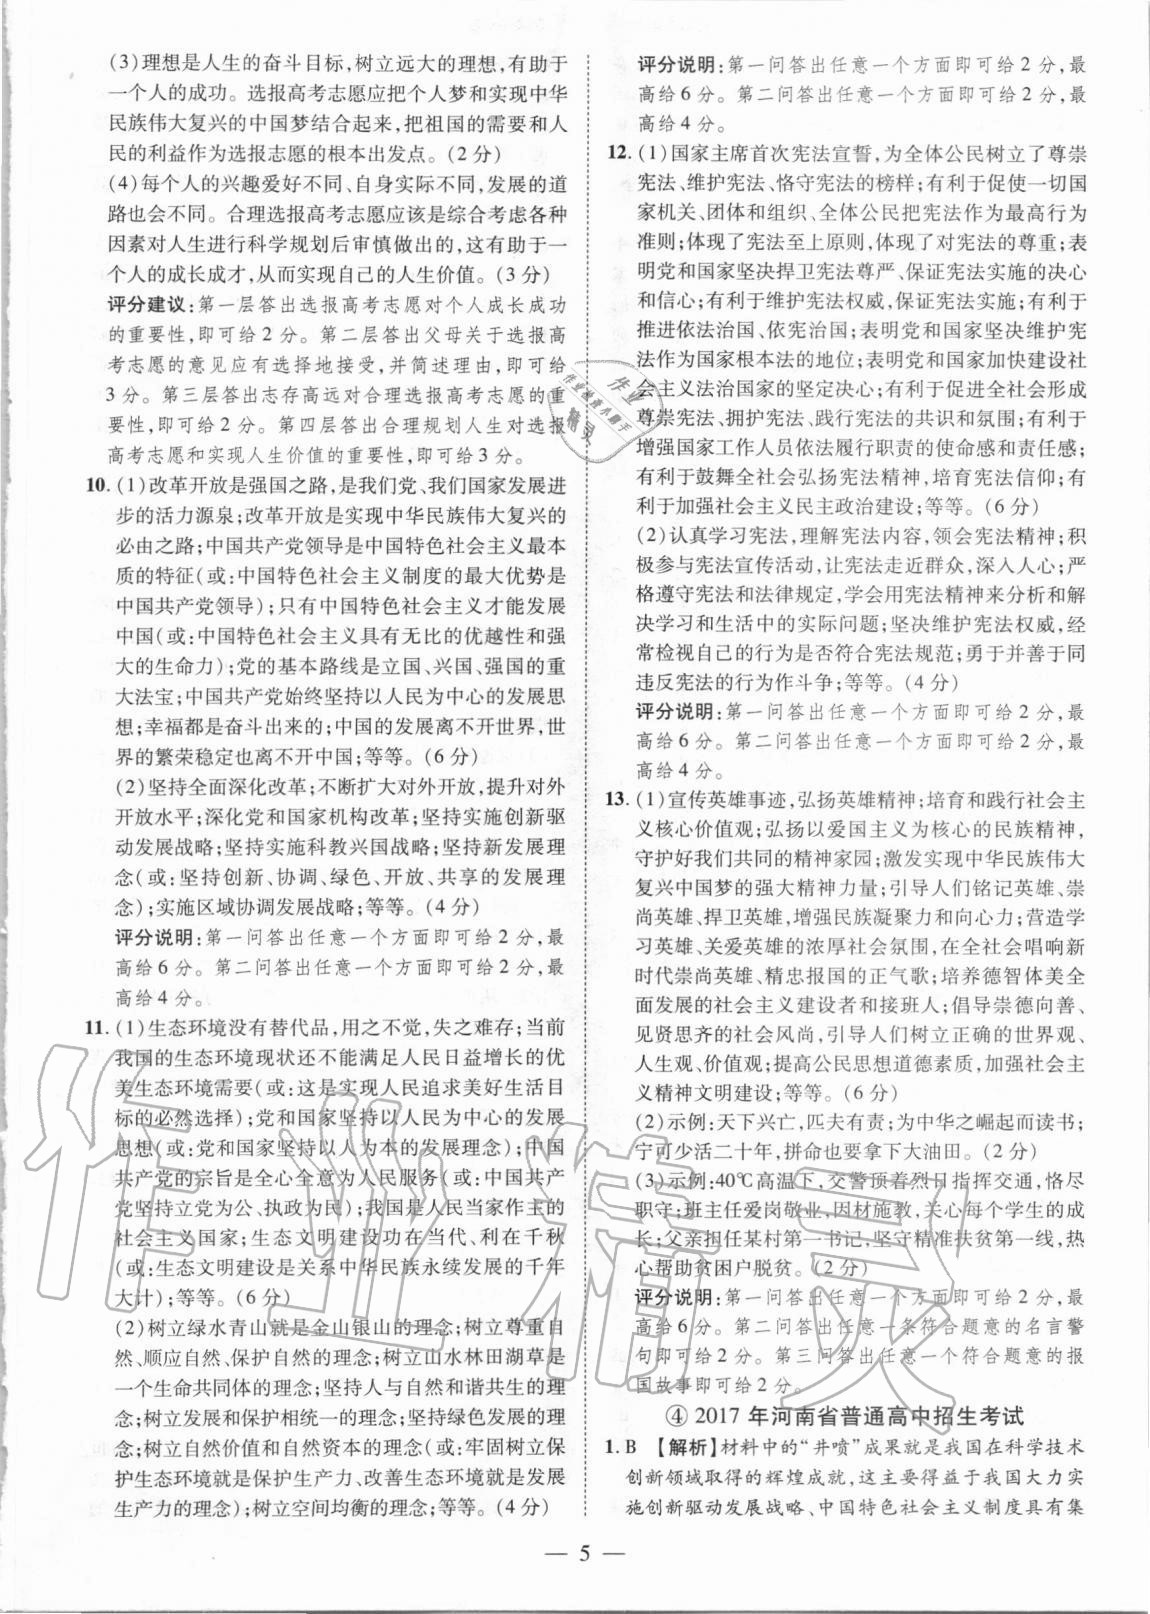 (3)理想是人生的奋斗目标,树立远大的理想,有助于
一个人的成功。选报高考志愿应把个人梦和实现中华
民族伟大复兴的中国梦结合起来,把祖国的需要和人
民的利益作为选报志愿的根本出发点。(2分)
(4)每个人的兴趣爱好不同、自身实际不同,发展的道
路也会不同。合理选报高考志愿应该是综合考虑各种
因素对人生进行科学规划后审慎做出的,这有助于一
个人的成长成才,从而实现自己的人生价值。(3分)
评分建议:第一层答出选报高考志愿对个人成长成功
的重要性,即可给2分。第二层答出父母关于选报高
考志愿的意见应有选择地接受,并简述理由,即可给
3分。第三层答出志存高远对合理选报高考志愿的意
义,即可给2分。第四层答出合理规划人生对选报
高考志愿和实现人生价值的重要性,即可给3分。
10.(1)改革开放是强国之路,是我们党、我们国家发展进
步的活力源泉;改革开放是实现中华民族伟大复兴的
必由之路;中国共产党领导是中国特色社会主义最本
质的特征(或:中国特色社会主义制度的最大优势是
中国共产党领导);只有中国特色社会主义才能发展
中国(或:中国特色社会主义具有无比的优越性和强
大的生命力);党的基本路线是立国、兴国、强国的重
大法宝;中国共产党始终坚持以人民为中心的发展思
想;幸福都是奋斗出来的;中国的发展离不开世界,世
界的繁荣稳定也离不开中国;等等。(6分)
(2)坚持全面深化改革;不断扩大对外开放,提升对外
开放水平;深化党和国家机构改革;坚持实施创新驱
动发展战略;坚持实施科教兴国战略;坚持新发展理
念(或:坚持创新、协调、绿色、开放、共享的发展理
念);实施区域协调发展战略;等等。(4分)
评分说明:第一问答出任意一个方面即可给2分,最
高给6分。第二问答出任意一个方面即可给2分,最
高给4分。
11.(1)生态环境没有替代品,用之不觉,失之难存;当前
我国的生态环境现状还不能满足人民日益增长的优
美生态环境需要(或:这是实现人民追求美好生活目
标的必然选择);党和国家坚持以人民为中心的发展
思想(或:党和国家坚持以人为本的发展思想);中国
共产党的宗旨是全心全意为人民服务(或:中国共产
党坚持立党为公、执政为民);我国是人民当家作主的
社会主义国家;生态文明建设功在当代、利在千秋
(或:生态文明建设是关系中华民族永续发展的千年
大计);等等。(6分)
(2)树立绿水青山就是金山银山的理念;树立尊重自
然、顺应自然、保护自然的理念;树立山水林田湖草是
一个生命共同体的理念;坚持人与自然和谐共生的理
念;树立发展和保护相统一的理念;树立绿色发展的理
念;树立自然价值和自然资本的理念;树立牢固树立保
护生态环境就是保护生产力、改善生态环境就是发展
生产力的理念;树立空间均衡的理念;等等。(4分)
评分说明:第一问答出任意一个方面即可给2分,最
高给6分。第二问答出任意一个方面即可给2分,最
高给4分。
12.(1)国家主席首次宪法宣誓,为全体公民树立了尊崇
宪法、维护宪法、恪守宪法的榜样;有利于促使一切国
家机关、团体和组织、全体公民把宪法作为最高行为
准则;体现了宪法至上原则,体现了对宪法的尊重;表
明党和国家坚决捍卫宪法尊严、保证宪法实施的决心
和信心;有利于维护宪法权威,保证宪法实施;有利于
推进依法治国、依宪治国;表明党和国家坚决维护宪
法作为国家根本法的地位;表明党和国家加快建设社
会主义法治国家的坚定决心;有利于促进全社会形成
尊崇宪法、拥护宪法、维护宪法的共识和氛围;有利于
增强国家工作人员依法履行职责的使命感和责任感;
有利于鼓舞全社会弘扬宪法精神,培育宪法信仰;有
利于加强社会主义民主政治建设;等等。(6分)
(2)认真学习宪法,理解宪法内容,领会宪法精神;积
极参与宪法宣传活动,让宪法走近群众,深入人心;严
格遵守宪法和法律规定,学会用宪法精神来分析和解
决学习和生活中的实际问题;坚决维护宪法权威,经
常检视自己的行为是否符合宪法规范;勇于并善于同
违反宪法的行为作斗争;等等。(4分)
评分说明:第一问答出任意一个方面即可给2分,最
高给6分。第二问答出任意一个方面即可给2分,最
高给4分。
13.(1)宣传英雄事迹,弘扬英雄精神;培育和践行社会主
义核心价值观;弘扬以爱国主义为核心的民族精神,
守护好我们共同的精神家园;激发实现中华民族伟大
复兴中国梦的强大精神力量;引导人们铭记英雄、崇
尚英雄、捍卫英雄,增强民族凝聚力和向心力;营造学
习英雄、关爱英雄的浓厚社会氛围,在全社会唱响新
时代崇尚英雄、精忠报国的正气歌;培养德智体美全
面发展的社会主义建设者和接班人;倡导崇德向善、
见贤思齐的社会风尚,引导人们树立正确的世界观、
人生观、价值观;提高公民思想道德素质,加强社会主
义精神文明建设;等等。(6分)
(2)示例:天下兴亡,匹夫有责;为中华之崛起而读书;
宁可少活二十年,拼命也要拿下大油田。(2分)
(3)示例:40℃高温下,交警顶着烈日指挥交通,恪尽
职守;班主任爱岗敬业,因材施教,关心每个学生的成
长;父亲担任某村第一书记,坚守精准扶贫第一线,热
心帮助贫困户脱贫。(2分)
评分说明:第一问答出任意一个方面即可给2分,最
高给6分。第二问答出任意一条符合题意的名言警
句即可给2分。第三问答出任意一个符合题意的报
国故事即可给2分。
④ 2017年河南省普通高中招生考试
1. B 【解析】材料中的“井喷”成果就是我国在科学技术
创新领域取得的辉煌成就,这主要得益于我国大力实
施创新驱动发展战略、中国特色社会主义制度具有集
— 5 —
作业精灵